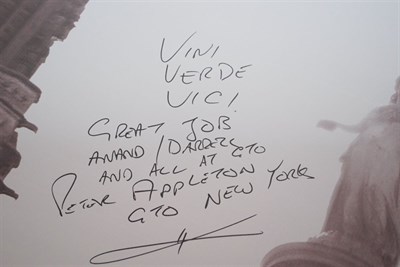 VINI
VERDE
VICI
GREAT JOB
ANAND / DARRELL
AND ALL AT GTO
PETER APPLETON
GTO NEW YORK